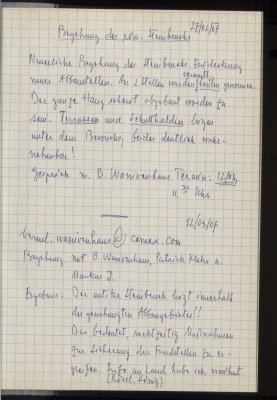 27/02/07
Begehung des röm. Steinbruchs
Neuerliche Begehung des Steinbruchs. Entdeckung
neuer Abbaustellen. An 2 Stellen wurden genommen.
Der ganze Hang scheint abgebaut worden zu
sein. Terrassen und Schutthalden liegen
unter dem Bewuchs, beides deutlich wahr-
nehmbar!
Gespräch m. B. Wanivenhaus Termin: 12/03,
11,30 Uhr
12/03/07
bernd.wanivenhaus@
Begehung mit B. Wanivenhaus, Patrick u.
Markus J.
Ergebnis: Der antike Steinbruch liegt innerhalb
des genehmigten Abbaugebietes!!
Das bedeutet, rechtzeitig Maßnahmen
zur Sicherung der Fundstellen zu er-
greifen. Info an Land habe ich